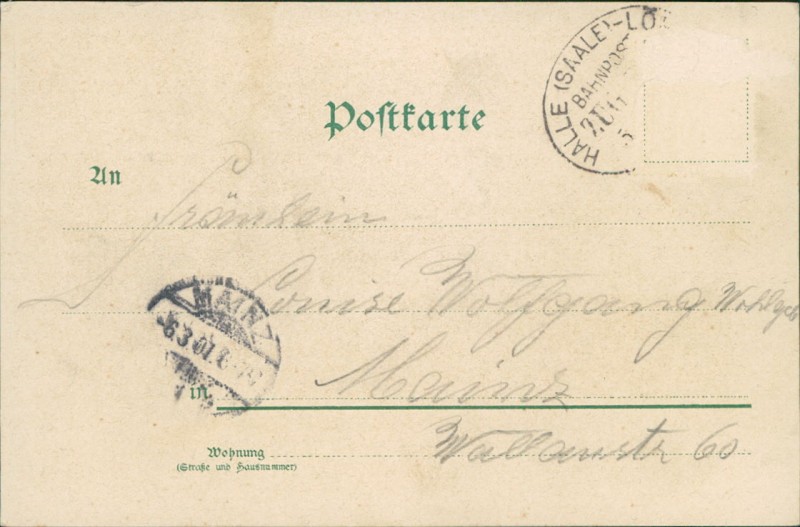 HALLE (SAALE)-LÖ
BAHNPOST
ZUG 11
5
Postkarte
An
Fräulein
Louise Wolfgang Wohlgeb
MAINZ
6.3.01.
in Mainz
Wallaustr 60
Wohnung
(Straße und Hausnummer)